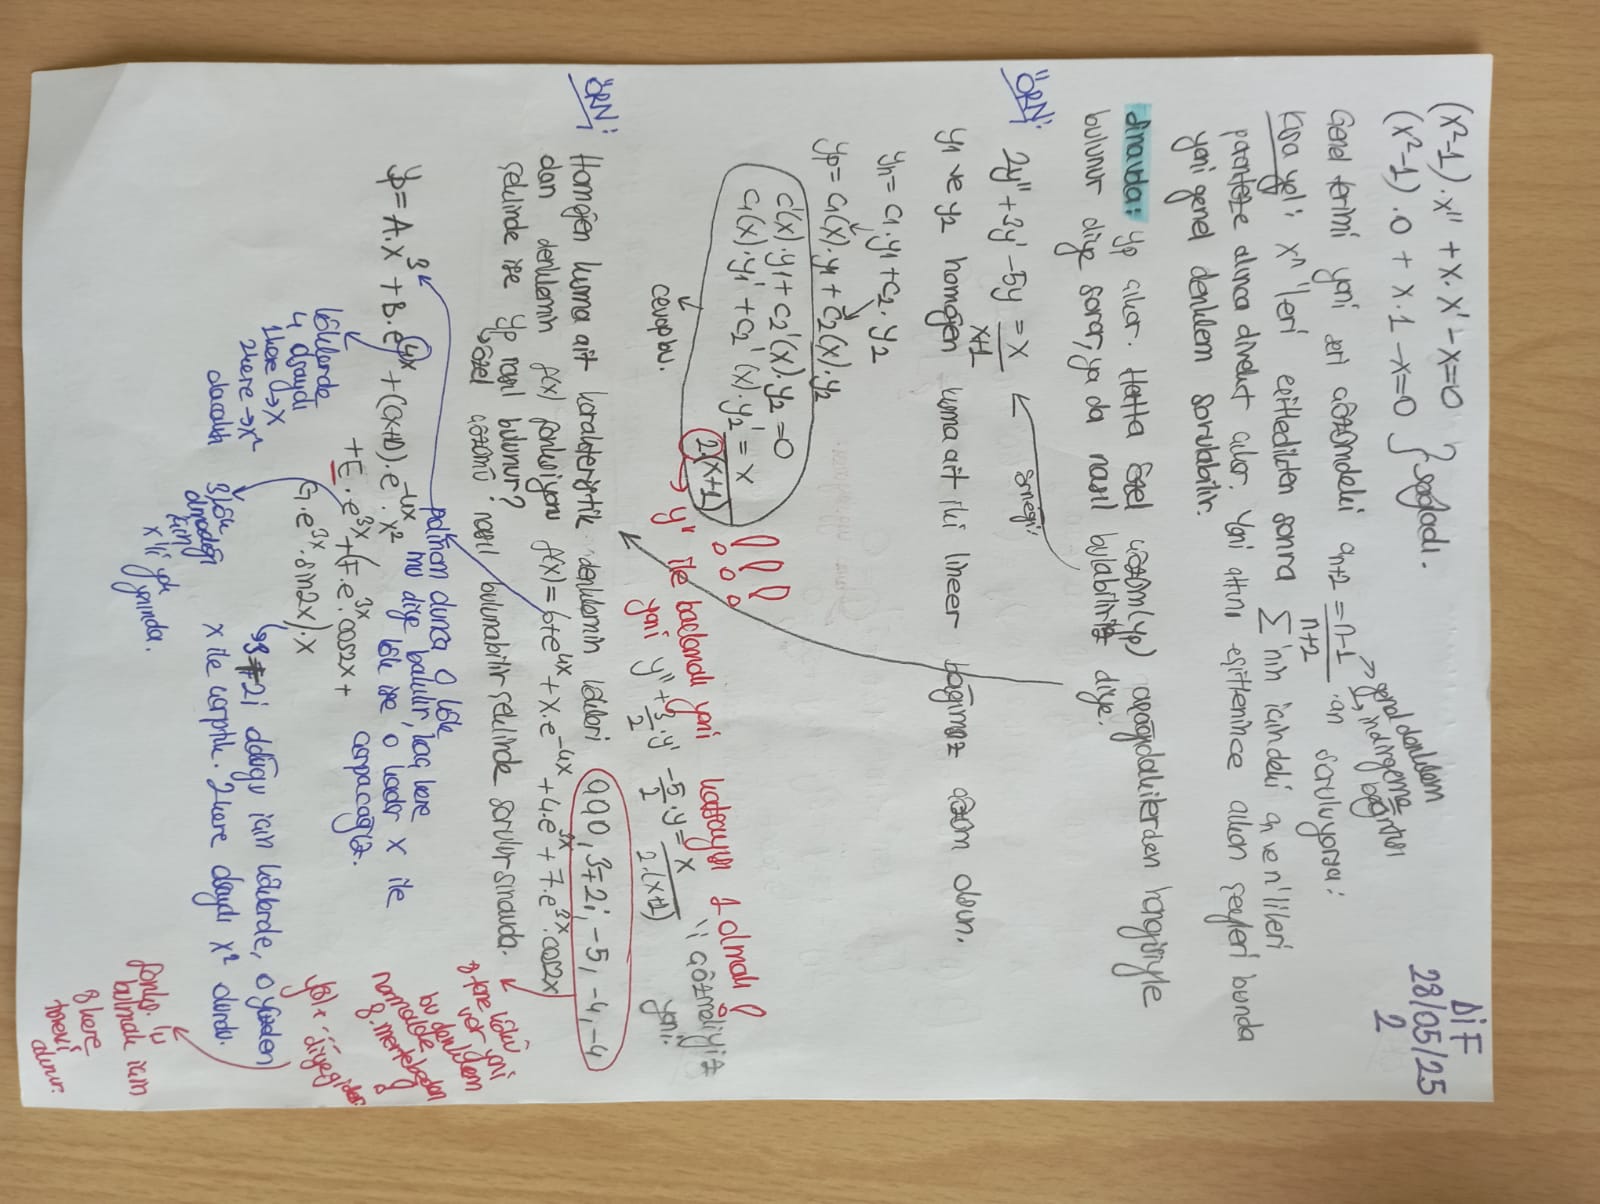 DİF
28/05/25
2
(x²-1).x'' + x.x' - x=0 ?
(x²-1).0 + x.1 -x=0 } sağladı.
Genel terimi yani seri çözümdeki an+2 = n-1/n+2 .an soruluyorsa:
genel denklem
indirgeme bağıntısı
Kısa yol: xⁿ'leri eşitledikten sonra Σ'nin içindeki a ve n'lileri
paranteze alınca direkt çıkar. Yani altını eşitlenince çıkan şeyleri bunda
yani genel denklem sorulabilir.
Sınavda: yp çıkar. Hatta özel çözüm(yp) aşağıdakilerden hangisiyle
bulunur diye sorar, ya da nasıl bulabiliriz diye.
örneği
ÖRN: 2y'' + 3y' - 5y = x/x+1
y1 ve y2 homojen kısma ait iki lineer bağımsız çözüm olsun.
yh = c1.y1 + c2.y2
yp = c1(x).y1 + c2(x).y2
c1'(x).y1 + c2'(x).y2 = 0
c1'(x).y1' + c2'(x).y2' = x/2(x+1)
cevap bu.
!!! y'' ile başlandı yani katsayısı 1 olmalı!
yani y'' + 3/2.y' -5/2.y = x/2.(x+1) 'i çözmeliyiz
yani.
ÖRN: Homojen kısma ait karakteristik denklemin kökleri 0,0,0, 3∓2i, -5, -4, -4
olan denklemin f(x) fonksiyonu f(x) = 6+e^4x + x.e^-4x + 4.e^3x + 7.e^3x.cos2x
şeklinde ise yp nasıl bulunur?
özel çözümü nasıl bulunabilir şeklinde sorulur sınavda.
8 tane kökü
var yani
bu denklem
normalde
8. mertebeden
y⁽⁸⁾+... diye gider.
yp = A.x³ + B.e^4x + (Cx+D).e^-4x.x²
+E.e^3x + (F.e^3x.cos2x +
G.e^3x.sin2x).x
polinom olunca 0 kök
mü diye bakılır, kaç kere
kök ise o kadar x ile
çarpacağız.
köklerde
4 olsaydı
1 kere → x
2 kere → x²
olacaktı
3 kök
olmadığı
için
x'li yok
yanında.
3∓2i olduğu için köklerde, o yüzden
x ile çarptık. 2 kere olsaydı x² olurdu.
fonks.'u
bulmak için
8 kere
türevi
alınır.